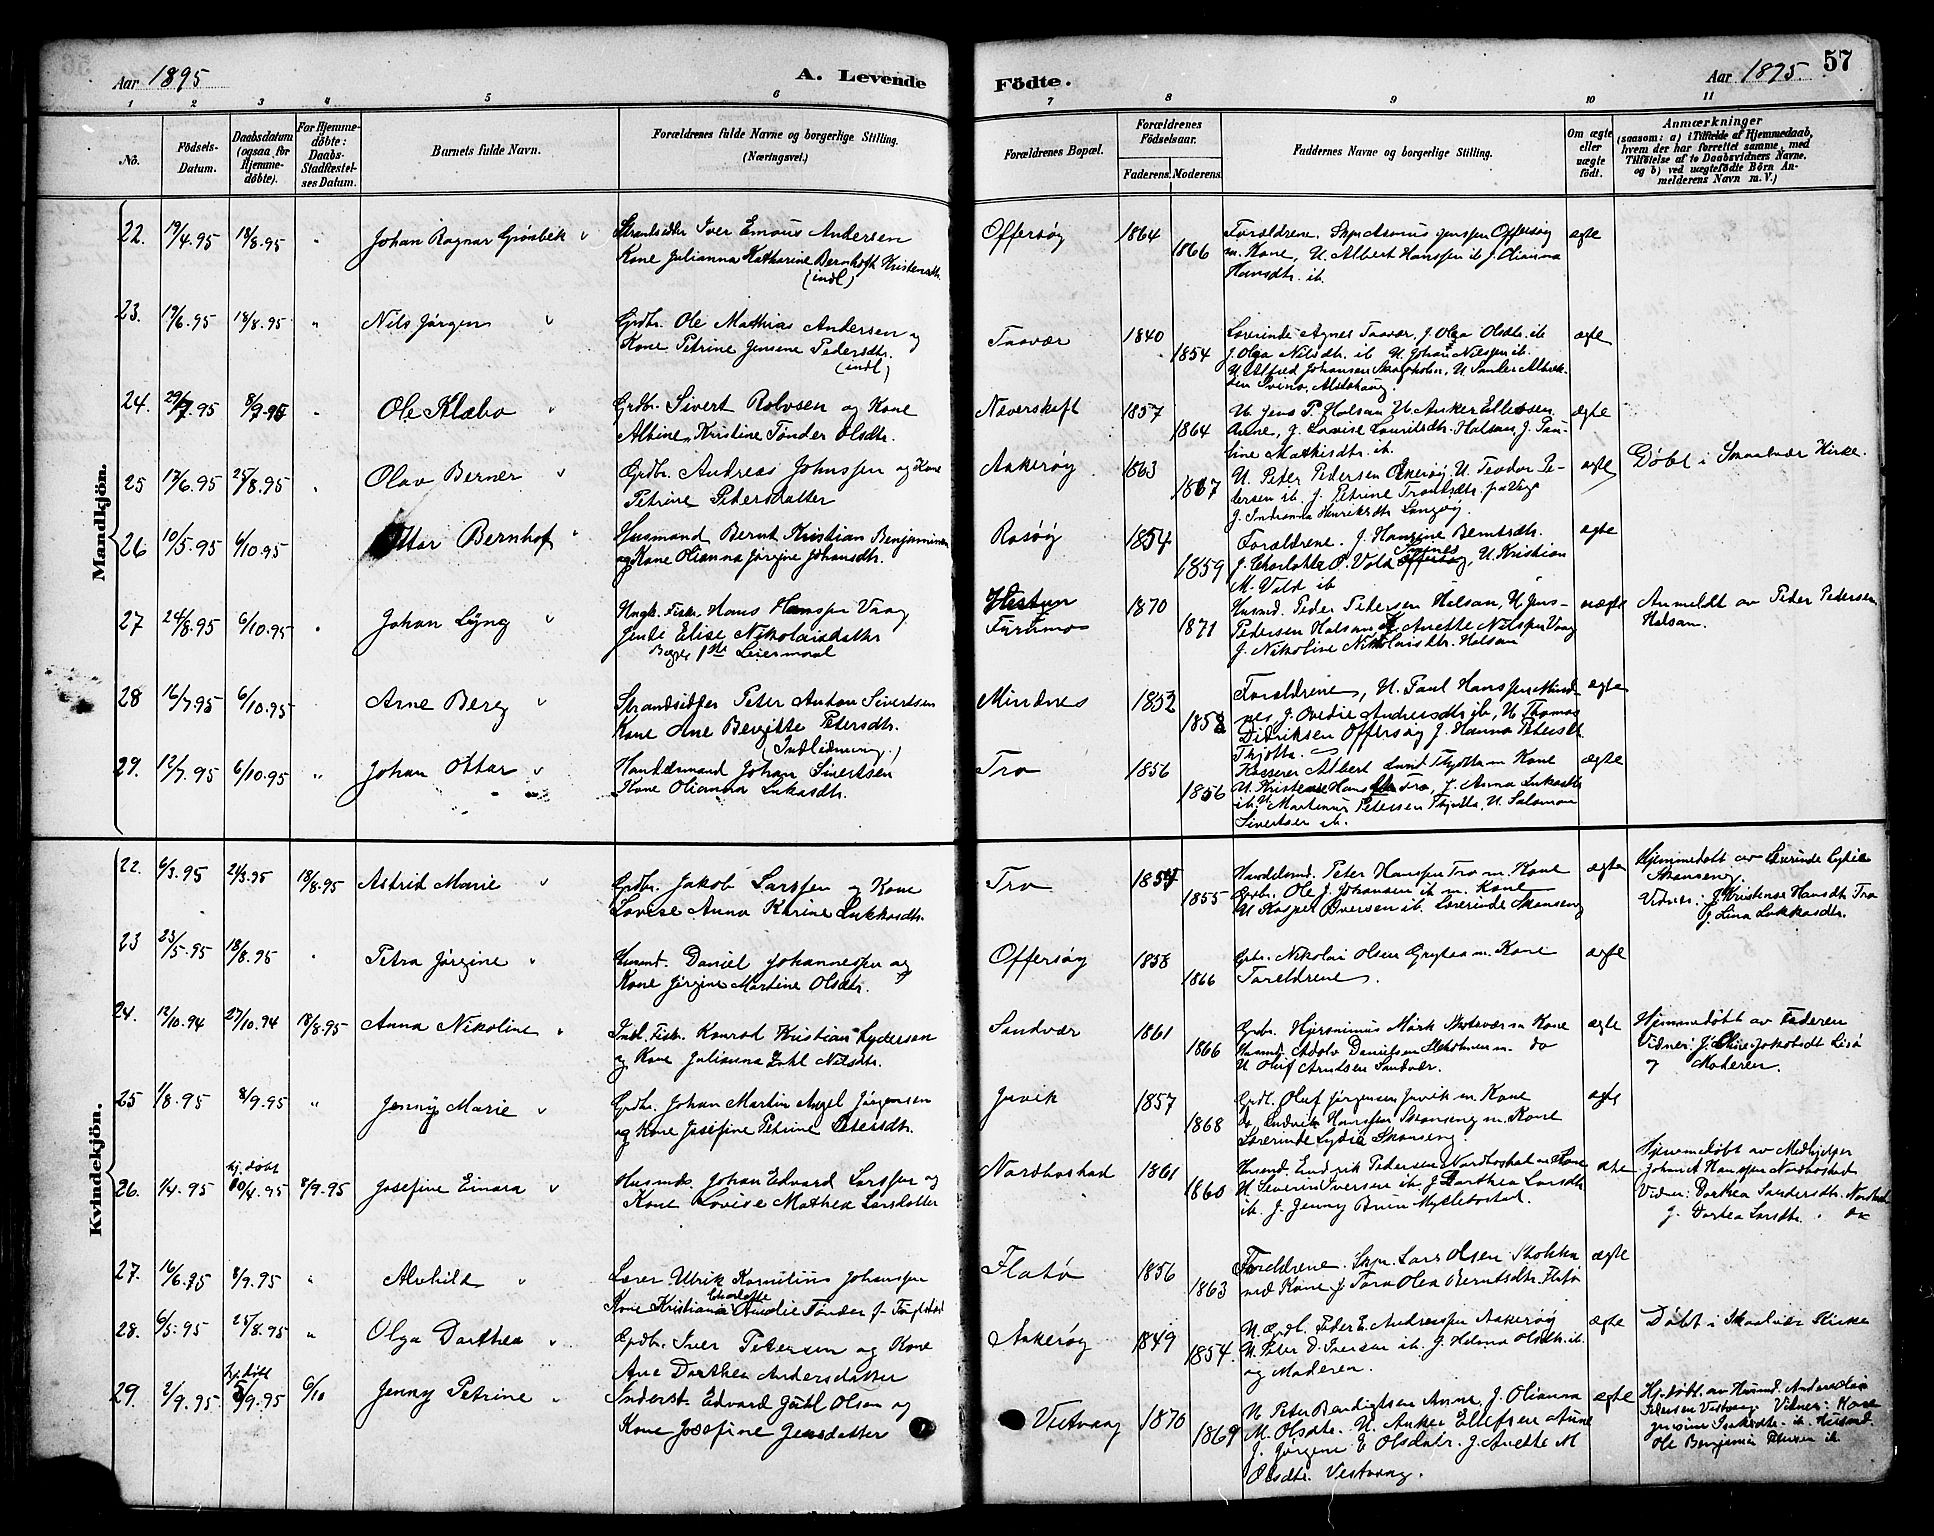 57
Aar 1895
A. Levende
Födte.
Aar 1895
1 2 3 4 5 6 7 8 9 10 11
No.
Födsels-
Datum.
Daabsdatum
(ogsaa for
Hjemme-
døbte).
For Hjemme-
døbte:
Daabs-
Stadfæstel-
ses Datum.
Barnets fulde Navn.
Forældrenes fulde Navne og borgerlige Stilling.
(Næringsvei.)
Forældrenes Bopæl.
Forældrenes
Födselsaar.
Faderens.
Moderens.
Faddernes Navne og borgerlige Stilling.
Om ægte
eller
uægte
født.
Anmærkninger
(saasom: a) i Tilfælde af Hjemmedaab,
hvem der har forrettet samme, med
Tilføielse af to Daabsvidners Navne.
og b) ved uægtefødte Börn An-
melderens Navn m. V.)
Mandkjön.
22. 19/4.95 18/8.95 " Johan Ragnar Grönbek
Strandsidder Iver Emaus Andersen
Kone Julianna Katharine Bernhoft Kristensdtr.
(indl)
Offersøy 1864 1866
Forældrene. Skpr Asmus Jenssen Offersøy
m. Kone, U. Albert Hanssen ib J. Olianna
Hansdtr. ib.
ægte
23. 19/6.95 18/8.95 " Nils Jørgen
Grdbr. Ole Mathias Andersen og
Kone Petrine Jensene Pedersdtr.
(indl)
Taavær 1840 1854
Lærerinde Agnes Taavær, J. Olga Olsdtr. ib
J. Olga Nilsdtr. ib U. Johan Nilssen ib.
U. Alfred Johansen Skogsholm, U. Sander Albrik-
sen Svinø, Alstahaug.
ægte
24. 29/7.95 8/9.95 " Ole Klæbo
Grdbr. Sivert Rolvsen og Kone
Albine Kristine Tønder Olsdtr.
Næverskeft 1857 1864
U. Jens P. Halsan U. Anker Ellevsen
Aune, J. Lovise Lauritsdtr. Halsan, J. Pau-
line Mathisdtr. ib.
ægte
25 17/6.95 25/8.95 " Olav Berner
Grdbr. Andreas Johnssen og Kone
Petrine Petersdatter
Aakerøy 1863 1867
U. Peter Pedersen Aakerøy, U. Teodor Pe-
tersen ib. J. Petrine
J. Indianna Henriksdtr Langøy.
ægte
Døbt i Skaalvær Kirke.
26 10/5.95 6/10.95 Ottar Bernhof
Husmand Bernt Kristian Benjaminsen
og Kone Olianna Jørgine Johansdtr.
Rosøy 1854 1859
Forældrene. J. Hansine Berntsdtr.
J. Charlotte P. Vold Offersøy, U. Kristian
M. Vold ib
ægte
27 24/8.95 6/10.95 " Johan Lyng
Ungk. Fisk. Hans Hanssen Vaag
Pende Elise Nikolaisdatter
Begges 1ste Leiermaal
Hestun
Furumo
1870 1871
Husmd. Peder Pedersen Halsan, U. Jens
Pedersen Halsan J. Anette Nilssen Vaag
J. Nikoline Nikolaisdtr. Halsan
uægte
Anmeldt av Peder Pedersen
Halsan.
28 16/7.95 6/10.95 Arne Berg
Strandsidder Peter Anton Sivertsen
Kone Ane Bergitte Petersdtr.
(Indlidnning.)
Mindnes 1852 1858
Forældrene, U. Paul Hanssen Mind-
nes, J. Ovedie Andersdtr ib, U. Thomas
Didriksen Offersøy J. Hanna Petersdt.
Thjøtta.
ægte
29. 12/7.95 6/10.95 " Johan Ottar
Handelsmand Johan Sivertsen
Kone Olianna Lukasdtr.
Tro 1856 1856
Kasserer Albert Lund Thjøtta m. Kone
U. Kristense Hansdtr Tro, J. Anna Lukasdtr
ib. U. Martinus Petersen Thjøtta, U. Salomon
Sivertsen ib.
ægte
Kvindekjön.
22. 6/3.95 24/3.95 18/8.95 Astrid Marie
Grdbr. Jakob Larssen og Kone
Lovise Anna Karine Lukkasdtr.
Tro 1854 1855
Handelsmd. Peter Hanssen Tro m. Kone
Grdbr. Ole J. Johansen ib m. Kone
U. Kasper Iversen ib. Lærerinde Skanseng
ægte
Hjemmedøbt av Lærerinde Lydie
Skanseng.
Vidner: J. Kristense Hansdtr Tro
J. Lina Lukkasdtr.
23 23/5.95 18/8.95 " Petra Jørgine
Husmd. Daniel Johannessen og
Kone Jørgine Martine Olsdtr.
Offersøy 1858 1866
Grbr. Nikolai Olsen Grytaa m. Kone
Foreldrene.
ægte
24. 12/10.94 27/10.94 18/8.95 Anna Nikoline
Indl. Fisk. Konrad Kristian Lydersen
og Kone Julianna Dahl Nilsdtr.
Sandvær 1861 1866
Grdbr. Hjeronimus Mørk Skotsvær m Kone
Husmd. Adolv Danielsen m. do
U. Oluf Arntsen Sandvær.
ægte
Hjemmedøbt av Faderen
Vidner: J. Elise Jakobsdt
og Moderen.
25 1/8.95 8/9.95 " Jenny Marie
Grdbr. Johan Martin Angel Jørgensen
og Kone Josefine Petrine Petersdtr.
Juvik 1857 1868
Grdb. Oluf Jørgensen Juvik m. Kone
Do. Ludvik Hanssen Skanseng m. Kone
Lærerinde Lydie Skanseng.
ægte
26. 1/4.95 hj. døbt 10/4.95 8/9.95 Josefine Einara
Husmd. Johan Edvard Larssen og
Kone Lovise Mathea Larsdatter
Nordhostad 1861 1860
Husmd. Endrik Pedersen Nordhostad m Kone
U. Severin Iversen ib. J. Dorthea Larsdtr
ib. J. Jenny Brun Myklebostad.
ægte
Hjemmedøbt av Medhjelper
Johan A Hanssen Nordhostad
Vidner: Dorthea Sandersdtr. Nordhostad
J. Dortea Larsdtr. do
27. 16/6.95 8/9.95 " Alvhild
Lærer Ulrik Kornilius Johanssen
Kone Kristiana Charlotte Amalie Tønder f. Fuglstad
Flatø 1856 1863
Foreldrene. Skpr. Lars Olsen Stokka
med Kone J Tora Olea Berntsdtr. Flatø
ægte
28. 6/5.95 25/8.95 " Olga Dorthea
Grdbr. Iver Petersen og Kone
Ane Dorthea Andersdatter
Aakerøy 1849 1854.
U. Grdb. Peder E. Andreassen Aakerøy
U. Peter D. Iversen ib. J. Helena Olsdtr. ib.
og Moderen.
ægte
Døbt i Skaalvær Kirke
29. 2/9.95 hj. døbt 5/9.95 6/10 Jenny Petrine
Inderst Edvard Juhl Olsen og
Kone Josefine Jensdatter
Vistvaag 1870 1869
U. Peter Benedigtsen Aune, J. Olianna
M. Olsdtr. U. Anker Ellefsen Aune
J. Jørgine E Olsdatr. J. Anette M
Olsdtr. Vestvaag.
ægte
Hj. døbt av Husmd. Andreas
Pedersen Vestvaag Vidner: Kone
ib Husmd.
Ole Benjamin Petersen ib